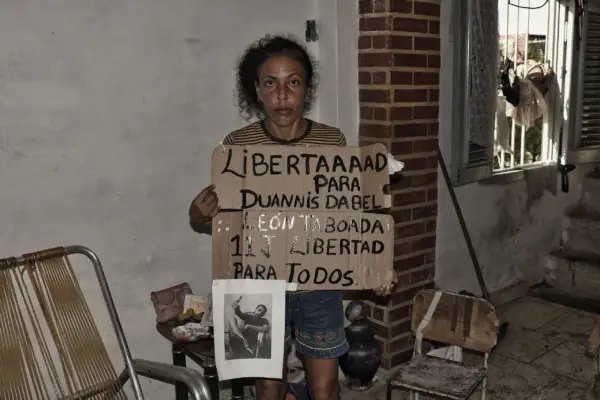 LIBERTAAAAD
PARA
DUANNIS DABEL
LEÓN TABOADA
11J LIBERTAD
PARA TODOS